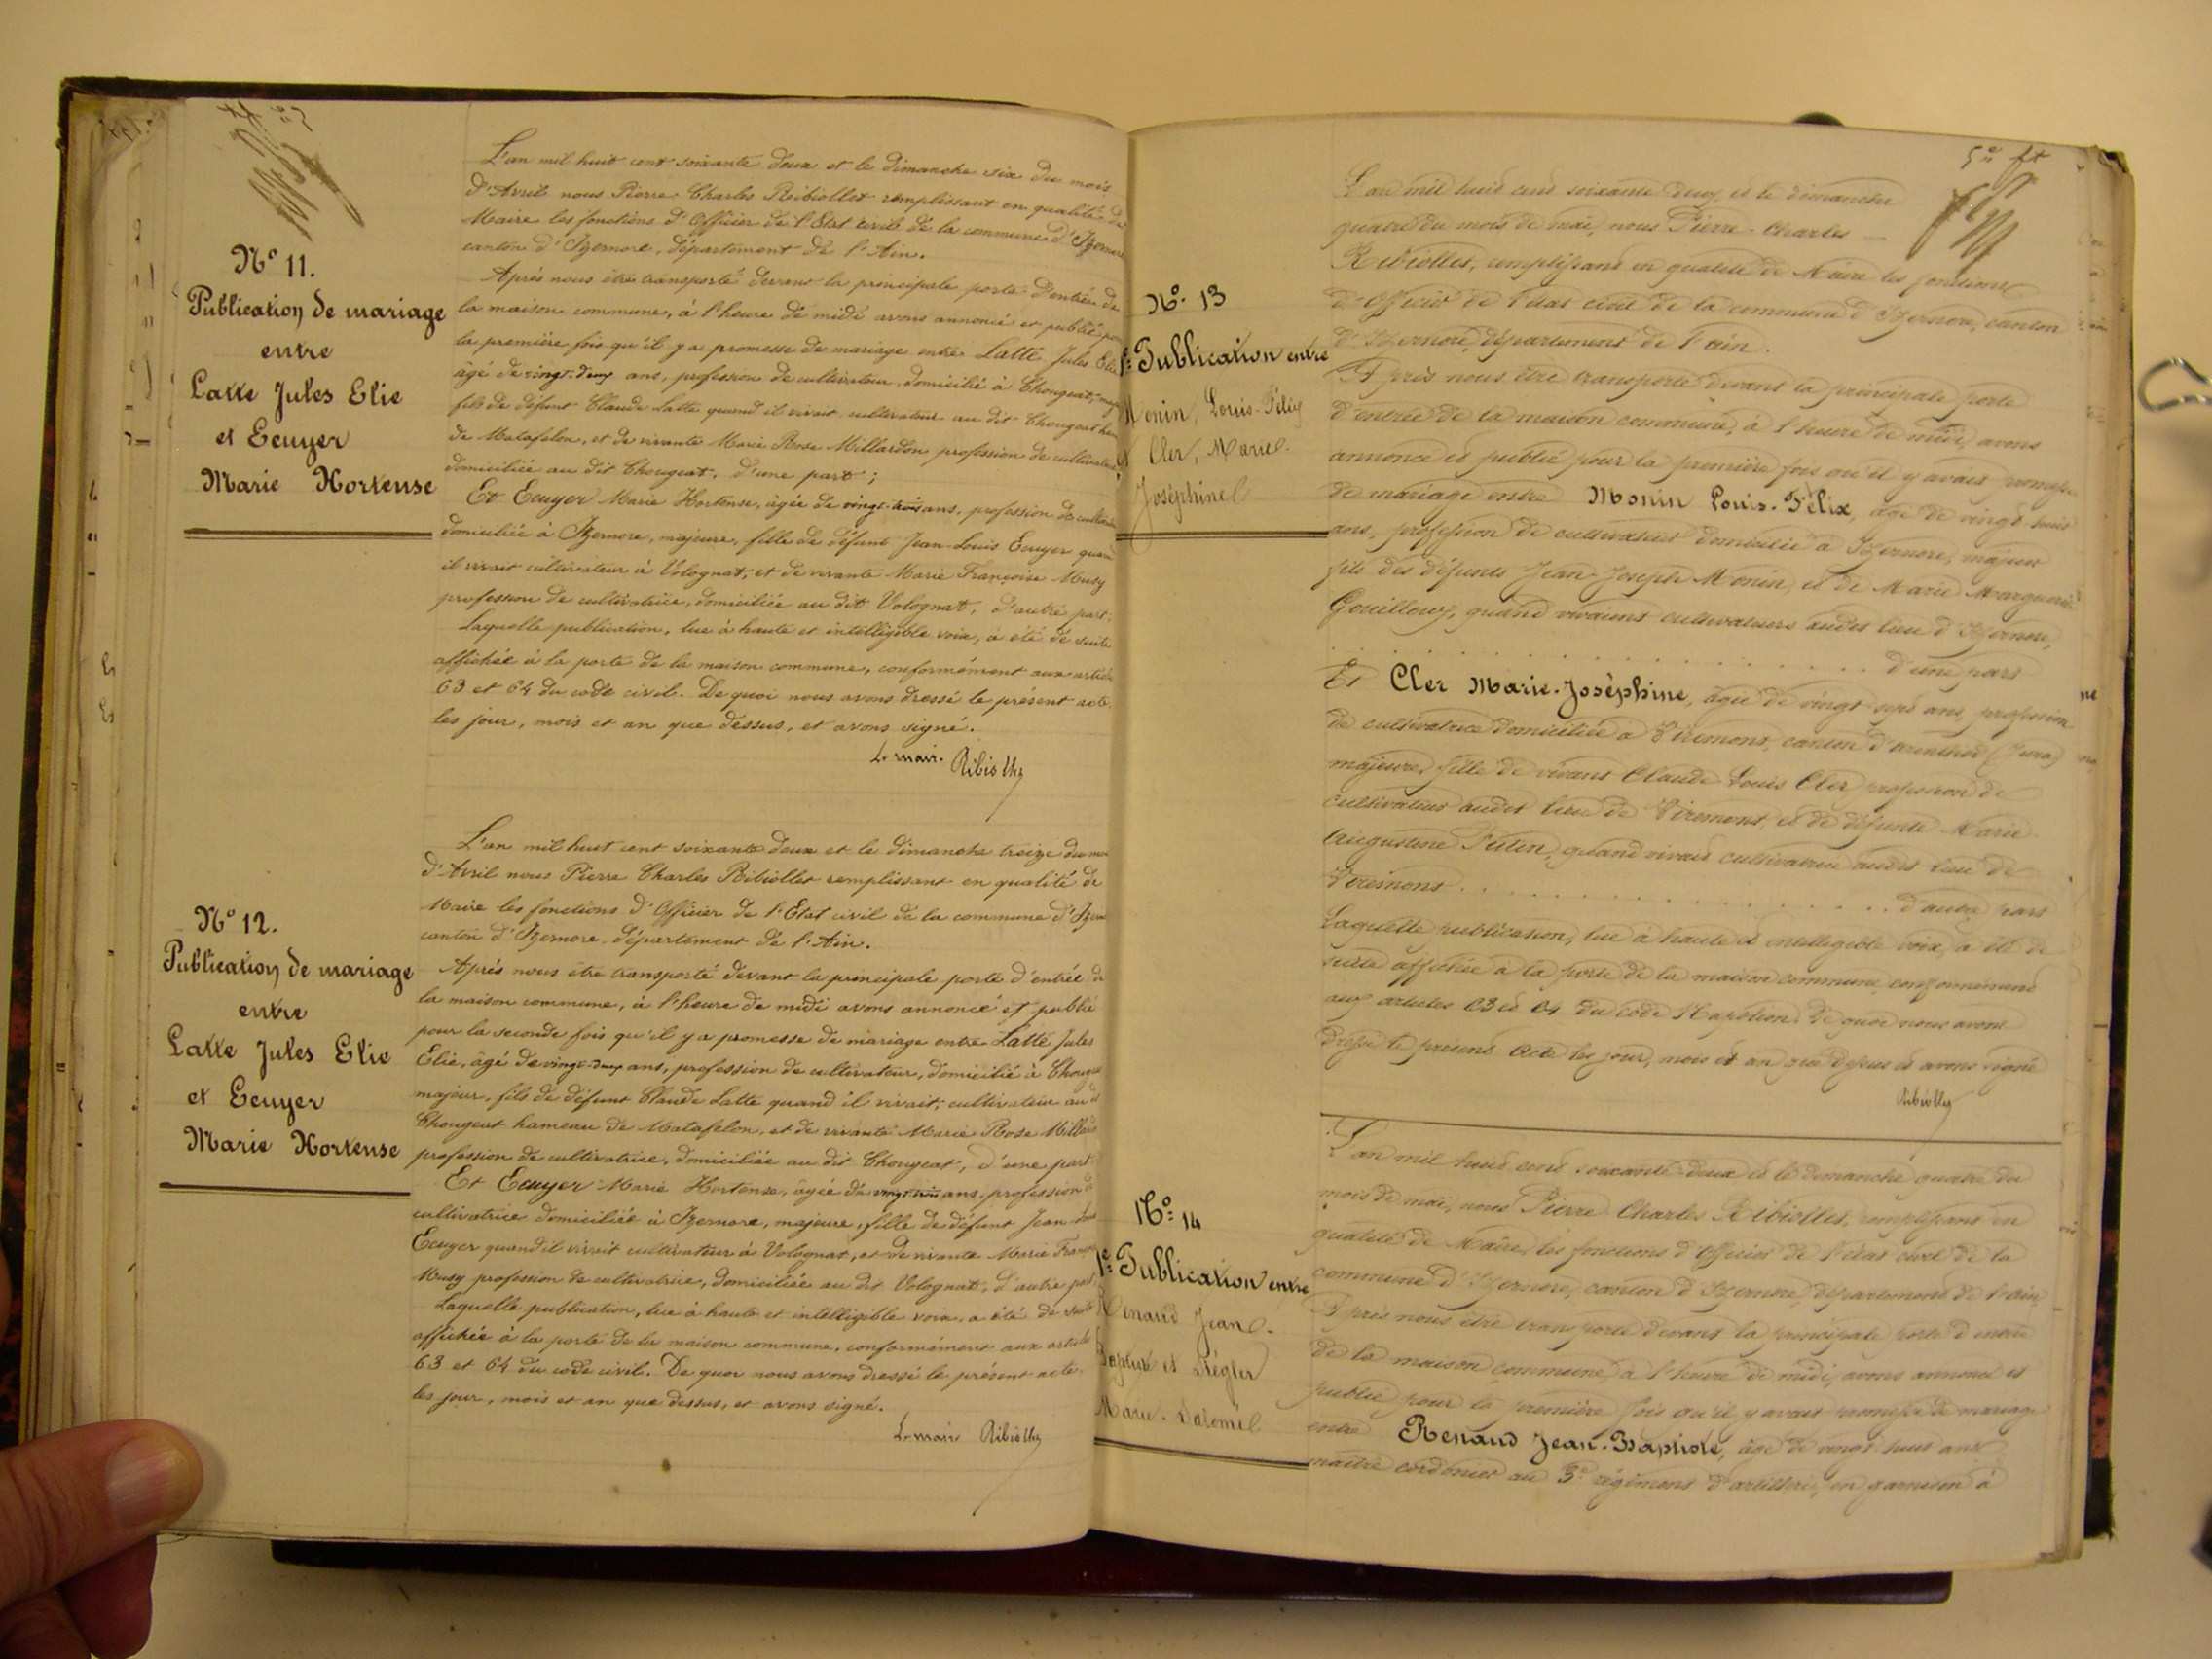 N° 11.
Publication de mariage
entre
Latte Jules Elie
et Ecuyer
Marie Hortense
L'an mil huit cent soixante deux et le dimanche six du mois
d'Avril nous Pierre Charles Ribiollet remplissant en qualité de
Maire les fonctions d'Officier de l'Etat civil de la commune d'Izernore
canton d'Izernore, département de l'Ain.
Après nous être transporté devant la principale porte d'entrée de
la maison commune, à l'heure de midi avons annoncé et publié pour
la première fois qu'il y a promesse de mariage entre Latte Jules Elie
âgé de vingt-deux ans, profession de cultivateur, domicilié à Chougeat,
fils de défunt Claude Latte quand il vivait cultivateur au dit Chougeat
de Matafelon, et de vivante Marie Rose Millardon profession de cultivatrice
domiciliée au dit Chougeat, d'une part;
Et Ecuyer Marie Hortense, âgée de vingt-trois ans, profession de
domiciliée à Izernore, majeure, fille de défunt Jean-Louis Ecuyer quand
il vivait cultivateur à Volognat, et de vivante Marie Françoise Musy
profession de cultivatrice, domiciliée au dit Volognat, d'autre part.
Laquelle publication, lue à haute et intelligible voix, a été de suite
affichée à la porte de la maison commune, conformément aux articles
63 et 64 du code civil. De quoi nous avons dressé le présent acte
les jour, mois et an que dessus, et avons signé.
Le maire Ribiollet
N° 12.
Publication de mariage
entre
Latte Jules Elie
et Ecuyer
Marie Hortense
L'an mil huit cent soixante deux et le dimanche treize du mois
d'Avril nous Pierre Charles Ribiollet remplissant en qualité de
Maire les fonctions d'Officier de l'Etat civil de la commune d'Izernore
canton d'Izernore, département de l'Ain.
Après nous être transporté devant la principale porte d'entrée de
la maison commune, à l'heure de midi avons annoncé et publié
pour la seconde fois qu'il y a promesse de mariage entre Latte Jules
Elie, âgé de vingt-deux ans, profession de cultivateur, domicilié à Chougeat
majeur, fils de défunt Claude Latte quand il vivait, cultivateur au dit
Chougeat hameau de Matafelon, et de vivante Marie Rose Millardon
profession de cultivatrice, domiciliée au dit Chougeat, d'une part.
Et Ecuyer Marie Hortense, âgée de vingt-trois ans, profession de
cultivatrice domiciliée à Izernore, majeure, fille de défunt Jean Louis
Ecuyer quand il vivait cultivateur à Volognat, et de vivante Marie Françoise
Musy profession de cultivatrice, domiciliée au dit Volognat, d'autre part.
Laquelle publication, lue à haute et intelligible voix, a été de suite
affichée à la porte de la maison commune, conformément aux articles
63 et 64 du code civil. De quoi nous avons dressé le présent acte
les jour, mois et an que dessus, et avons signé.
Le maire Ribiollet
N° 13
1e Publication entre
Monin, Louis-Félix
et Cler, Marie-
Joséphine
L'an mil huit cent soixante deux, et le dimanche
quatre du mois de mai, nous Pierre-Charles
Ribiollet, remplissant en qualité de Maire les fonctions
d'Officier de l'état civil de la commune d'Izernore, canton
d'Izernore, département de l'ain.
Après nous être transporté devant la principale porte
d'entrée de la maison commune, à l'heure de midi, avons
annoncé et publié pour la première fois qu'il y avait promesse
de mariage entre Monin Louis-Félix, âgé de vingt-huit
ans, profession de cultivateur domicilié à Izernore, majeur
fils des défunts Jean-Joseph Monin, et de Marie Marguerite
Gouilloux, quand vivaient cultivateurs audit lieu d'Izernore,
d'une part
Et Cler Marie-Joséphine, âgée de vingt sept ans, profession
de cultivatrice domiciliée à Viremont, canton d'arinthod (Jura)
majeure, fille de vivant Claude Louis Cler profession de
cultivateur audit lieu de Viremont, et de défunte Marie
Augustine Putin, quand vivait cultivatrice audit lieu de
Viremont d'autre part
Laquelle publication, lue à haute et intelligible voix, a été de
suite affichée à la porte de la maison commune, conformément
aux articles 63 et 64 du Code Napoléon. De quoi nous avons
dressé le présent Acte les jour, mois et an que dessus et avons signé
Ribiollet
N° 14
1e Publication entre
Renaud Jean-
Baptiste et Siégler
Marie-Salomé
L'an mil huit cent soixante-deux et le dimanche quatre du
mois de mai, nous Pierre Charles Ribiollet, remplissant en
qualité de Maire, les fonctions d'Officier de l'état civil de la
commune d'Izernore, canton d'Izernore, département de l'ain
Après nous être transporté devant la principale porte d'entrée
de la maison commune, à l'heure de midi, avons annoncé et
publié pour la première fois qu'il y avait promesse de mariage
entre Renaud Jean-Baptiste, âgé de vingt huit ans
maître cordonier au 3e régiment d'artillerie, en garnison à